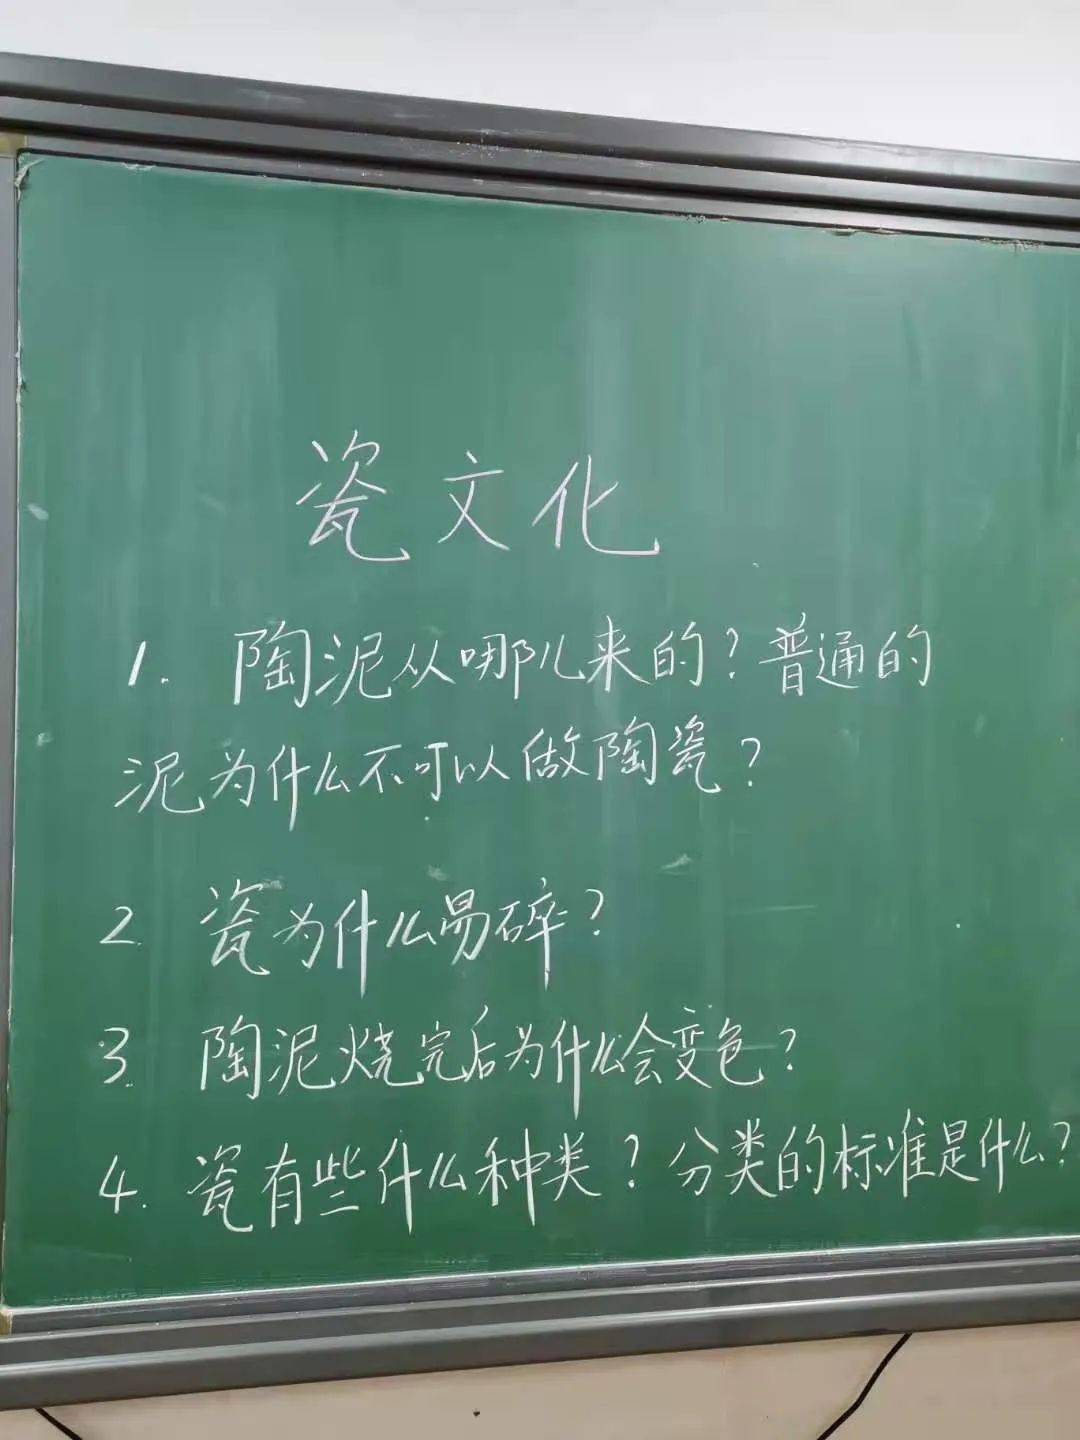 瓷文化
1. 陶泥从哪儿来的?普通的
泥为什么不可以做陶瓷?
2. 瓷为什么易碎?
3. 陶泥烧完后为什么会变色?
4. 瓷有些什么种类?分类的标准是什么?